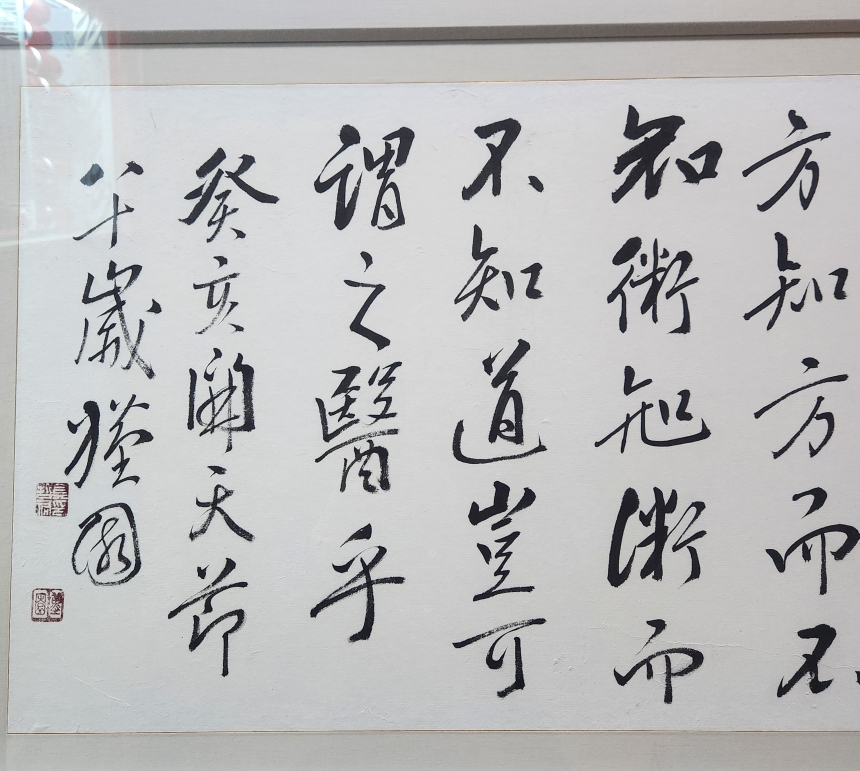 方知方而不
知術知術而
不知道豈可
謂之醫乎
癸亥開天節
八十歲槿園